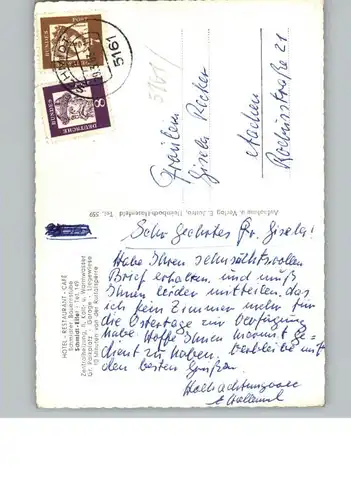 5161
DEUTSCHE
BUNDESPOST
8
5161
Fräulein
Gisela Recker
Aachen
Rochusstraße 21
Aufnahme u. Verlag E. Justra, Heimbach-Hasenfeld Tel. 559
HOTEL - RESTAURANT - CAFÉ
Schmidter Bauernstube
Schmidt-Eifel · Tel. 149
Zentralheizung, fl. Kalt- u. Warmwasser
Gr. Parkplatz - Garage - Liegewiese
10 Minuten von der Rurtalsperre
Sehr geehrtes Frl. Gisela!
Habe Ihren sehnsuchtsvollen
Brief erhalten und muß
Ihnen leider mitteilen, das
ich kein Zimmer mehr für
die Ostertage zur Verfügung
habe. Hoffe Ihnen hiermit ge-
dient zu haben. Verbleibe mit
den besten Grüßen
Hochachtungsvoll